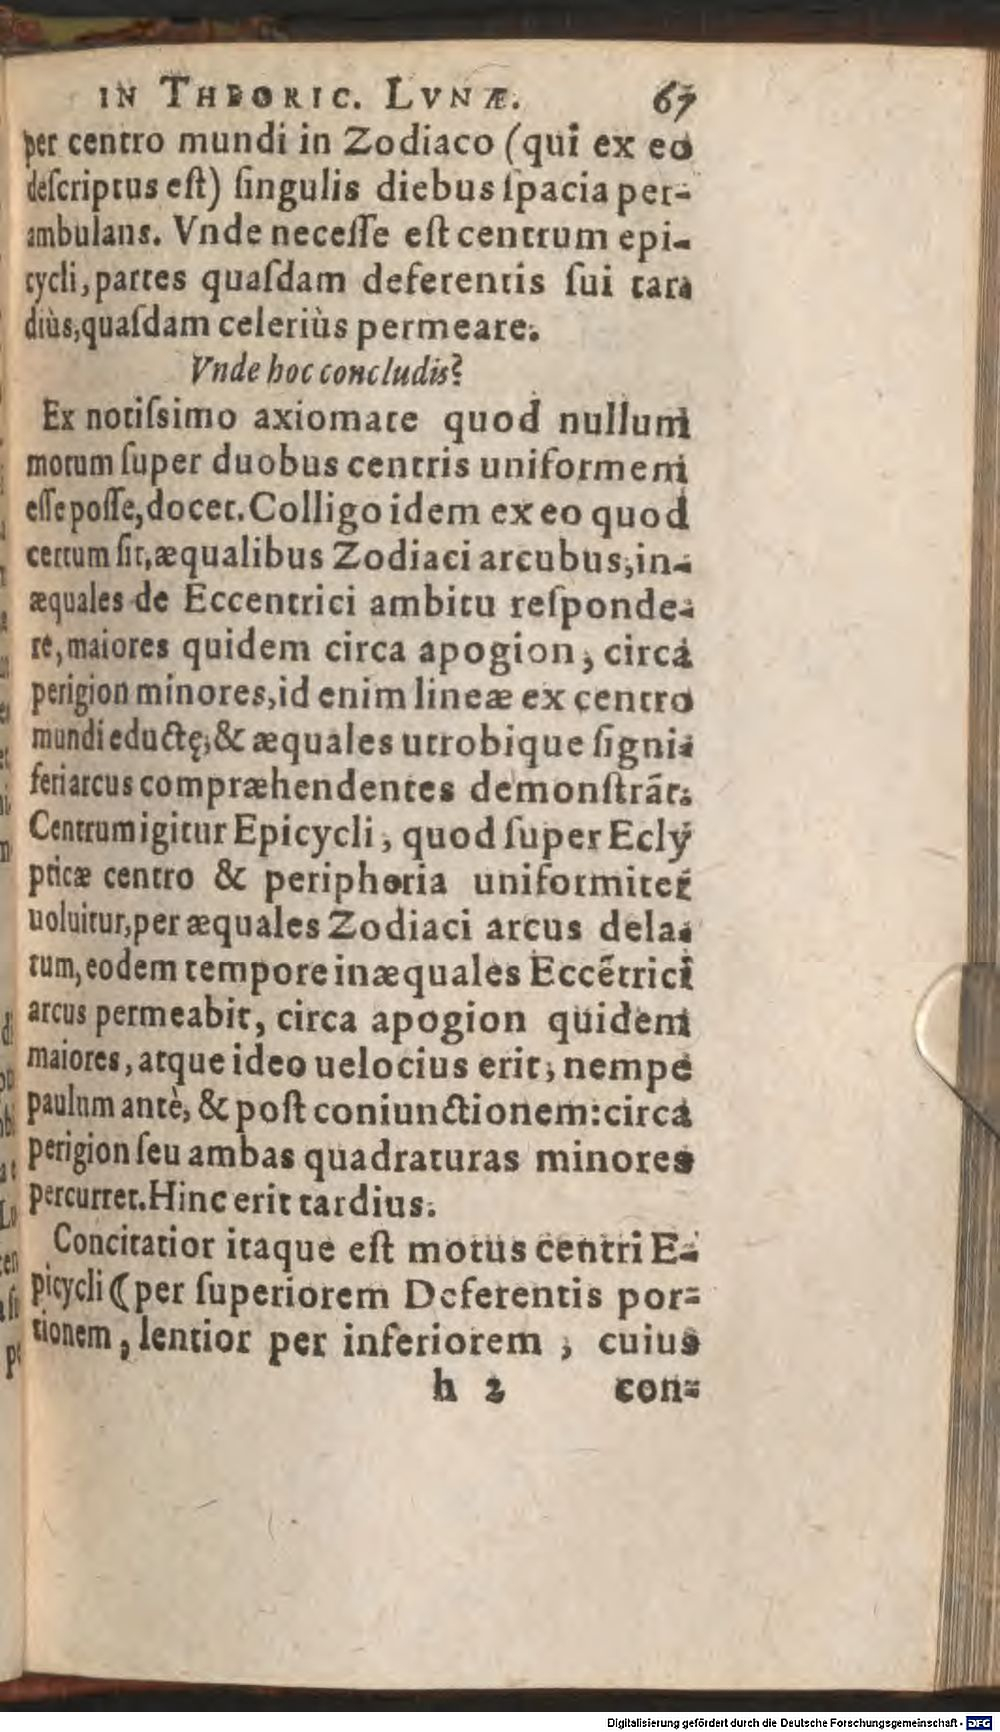 IN THEORIC. LVNÆ. 67
per centro mundi in Zodiaco (qui ex eo
deſcriptus eſt) ſingulis diebus ſpacia per-
ambulans. Vnde neceſſe eſt centrum epi-
cycli, partes quaſdam deferentis ſui tara
diùs, quaſdam celeriùs permeare.
Vnde hoc concludis?
Ex notiſsimo axiomate quod nullum
motum ſuper duobus centris uniformem
eſſe poſſe, docet. Colligo idem ex eo quod
certum ſit, æqualibus Zodiaci arcubus, in-
æquales de Eccentrici ambitu reſponde-
re, maiores quidem circa apogion, circa
perigion minores, id enim lineæ ex centro
mundi eductę, & æquales utrobique ſigni-
feri arcus compræhendentes demonſtrãt.
Centrum igitur Epicycli, quod ſuper Ecly
pticæ centro & peripheria uniformiter
uoluitur, per æquales Zodiaci arcus dela-
tum, eodem tempore inæquales Eccẽtrici
arcus permeabit, circa apogion quidem
maiores, atque ideo uelocius erit, nempe
paulum antè, & poſt coniunctionem: circa
perigion ſeu ambas quadraturas minores
percurret. Hinc erit tardius.
Concitatior itaque eſt motus centri E-
picycli ☾ per ſuperiorem Deferentis por-
tionem, lentior per inferiorem, cuius
h 2 con-
Digitalisierung gefördert durch die Deutsche Forschungsgemeinschaft - DFG